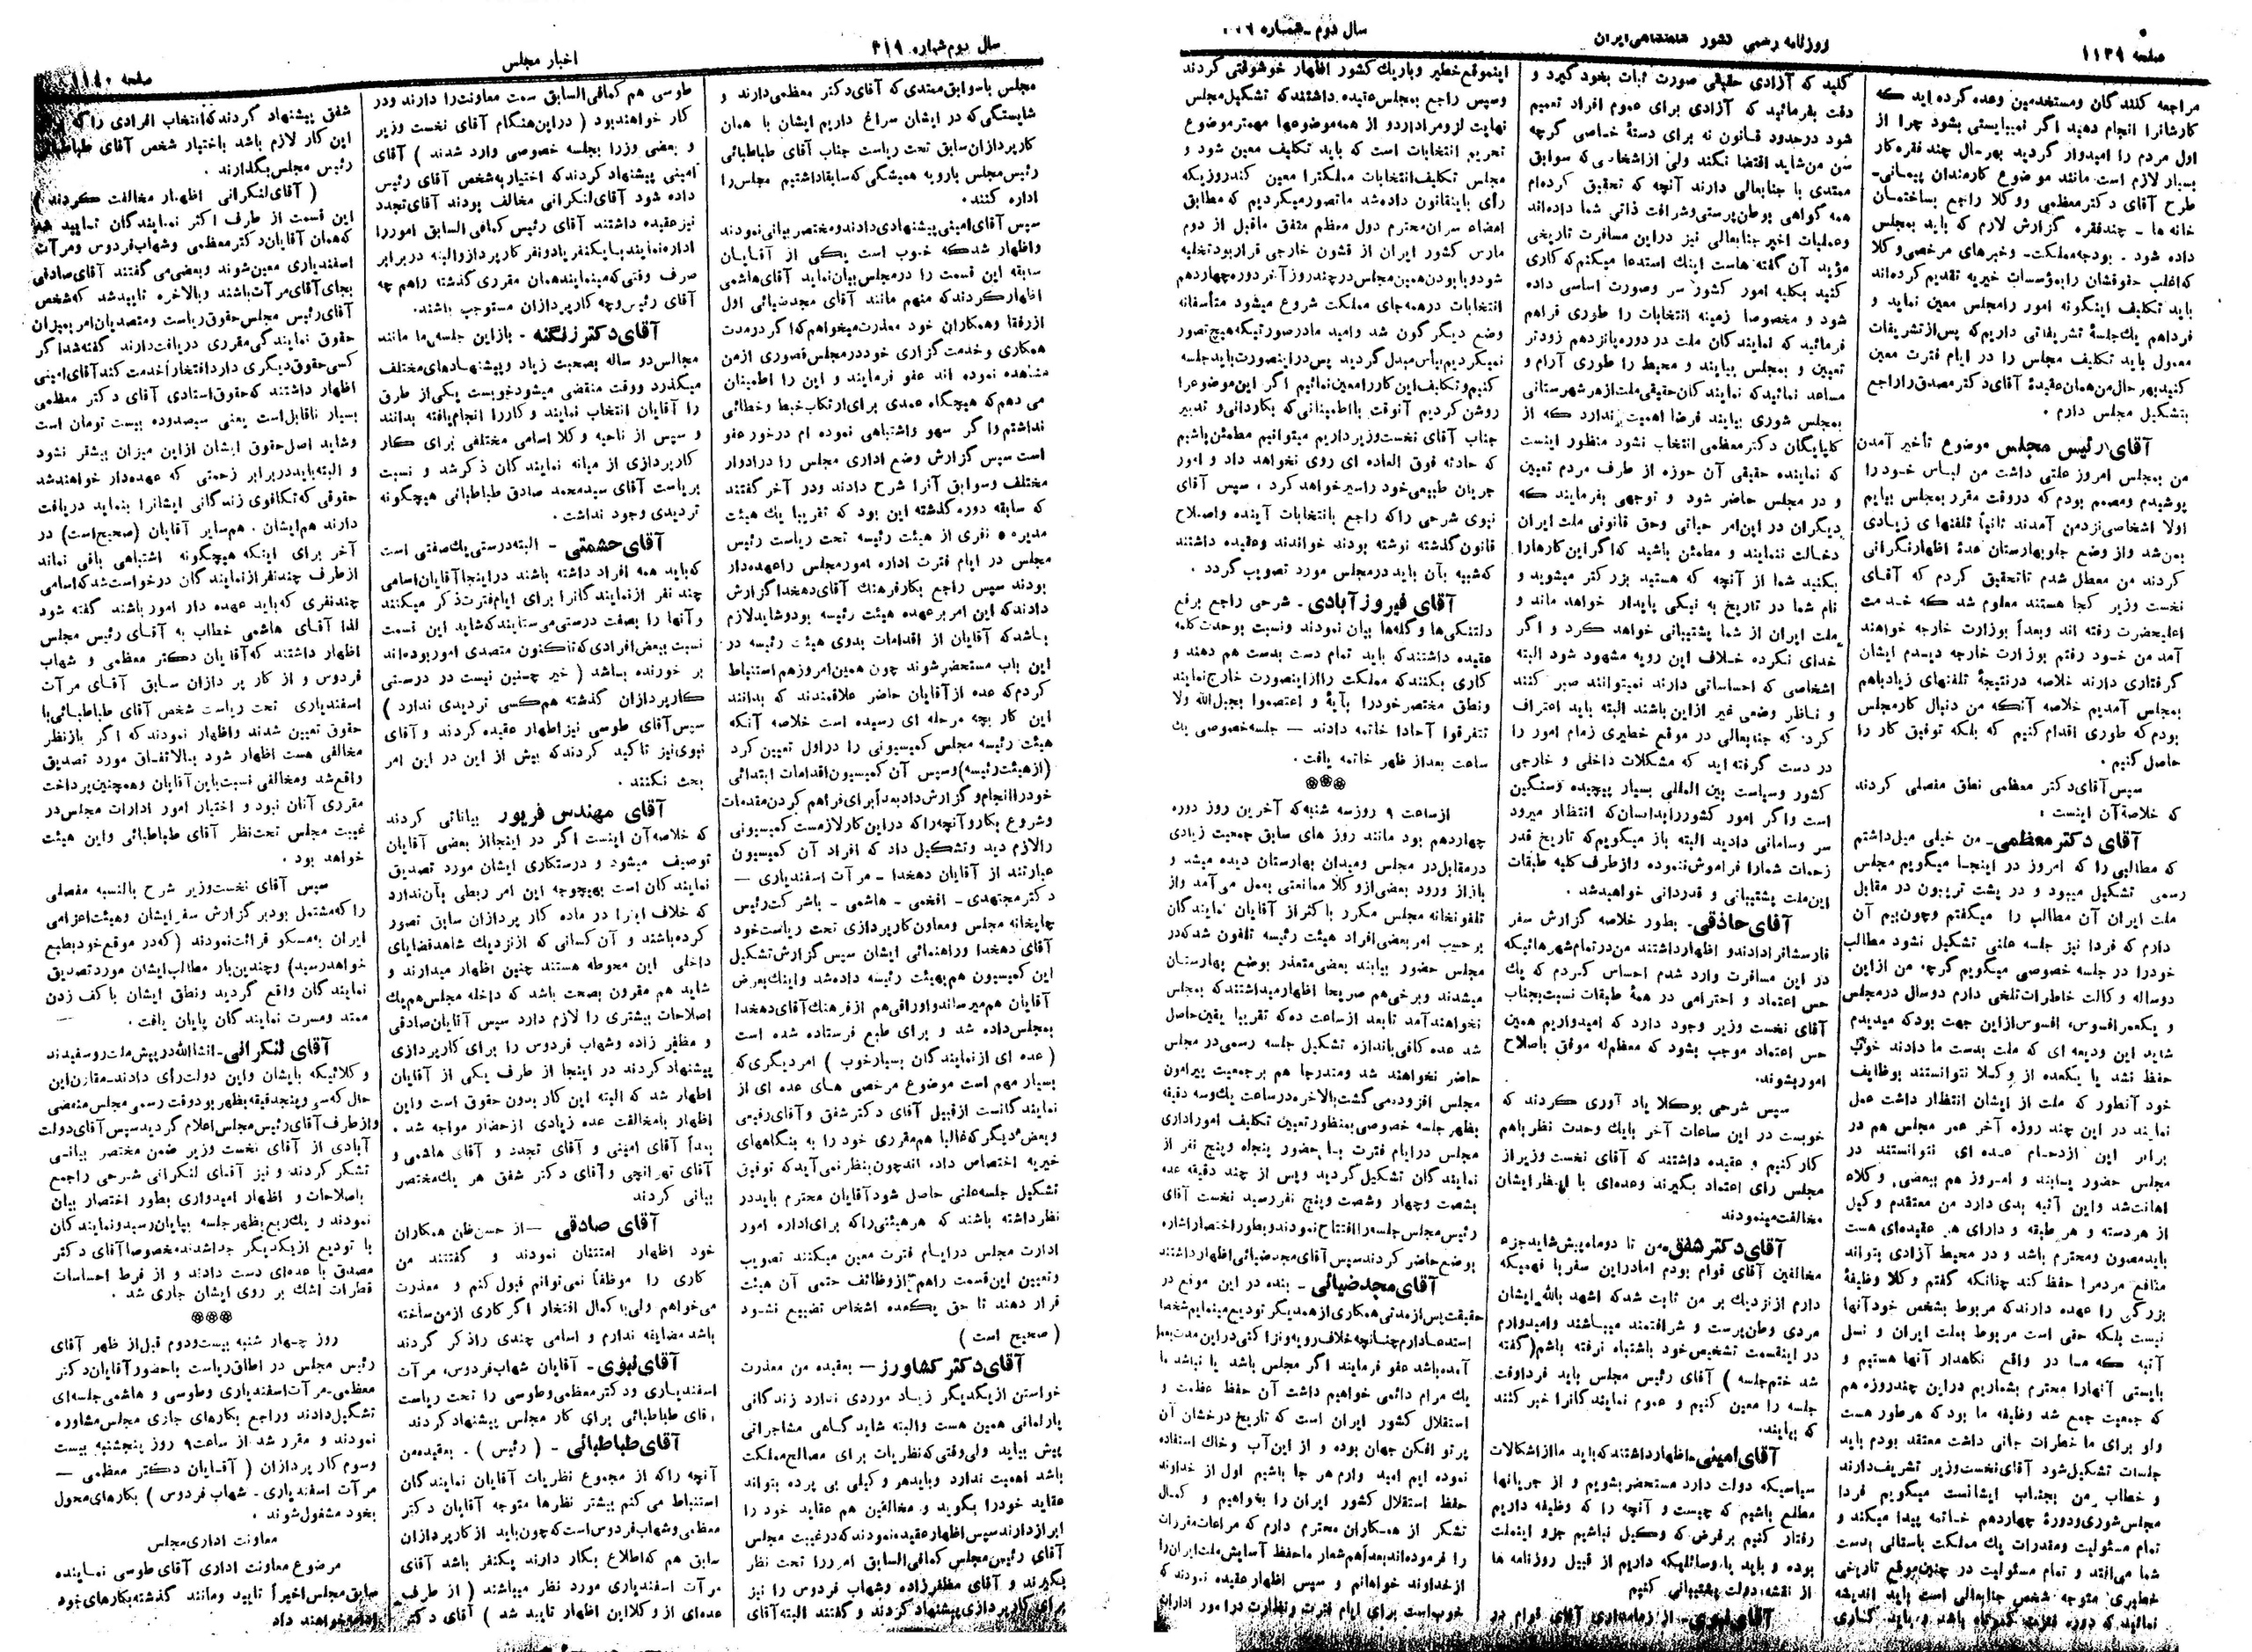 صفحه ۱۱۳۹
روزنامه رسمی کشور شاهنشاهی ایران
سال دوم - شماره
مراجعه کنندگان ومستخدمین وعده کرده اید که
کارشانرا انجام دهید اگر نمیبایستی بشود چرا از
اول مردم را امیدوار گردید بهرحال چند فقره کار
بسیار لازم است مانند موضوع کارمندان پیمانی-
طرح آقای دکتر معظمی ووکلا راجع بساختمان
خانه ها - چندفقره گزارش لازم که باید بمجلس
داده شود . بودجه مملکت- وخبرهای مرخصی وکلا
که اغلب حقوقشان رابمؤسسات خیریه تقدیم کرده‌اند
باید تکلیف اینگونه امور رامجلس معین نماید و
فرداهم یك جلسهٔ تشریفاتی داریم که پس از تشریفات
معمول باید تکلیف مجلس را در ایام فترت معین
کنید بهر حال من همان عقیدهٔ آقای دکتر مصدق را راجع
بتشکیل مجلس دارم .
آقای رئیس مجلس موضوع تأخیر آمدن
من بمجلس امروز علتی داشت من لباس خود را
پوشیدم ومصمم بودم که دروقت مقرر بمجلس بیایم
اولا اشخاصی نزد من آمدند ثانیاً تلفنهای زیادی
بمن شد واز وضع جلو بهارستان عدهٔ اظهار نگرانی
کردند من معطل شدم تاتحقیق کردم که آقای
نخست وزیر کجا هستند معلوم شد که خدمت
اعلیحضرت رفته اند وبعداً بوزارت خارجه خواهند
آمد من خود رفتم بوزارت خارجه دیدم ایشان
گرفتاری دارند خلاصه درنتیجهٔ تلفنهای زیاد باهم
بمجلس آمدیم خلاصه آنکه من دنبال کار مجلس
بودم که طوری اقدام کنیم که بلکه توفیق کار را
حاصل کنیم .
سپس آقای دکتر معظمی نطق مفصلی کردند
که خلاصه آن اینست :
آقای دکتر معظمی- من خیلی میل داشتم
که مطالبی را که امروز در اینجا میگویم مجلس
رسمی تشکیل میبود و در پشت تریبون در مقابل
ملت ایران آن مطالب را میگفتم وچون بیم آن
دارم که فردا نیز جلسه علنی تشکیل نشود مطالب
خودرا در جلسه خصوصی میگویم گرچه من از این
دوساله وکالت خاطرات تلخی دارم دوسال درمجلس
و یکعمر افسوس، افسوس از این جهت بود که میدیدم
شاید این ودیعه ای که ملت بدست ما دادند خوب
حفظ نشد یا یکعده از وکلا نتوانستند بوظایف
خود آنطور که ملت از ایشان انتظار داشت عمل
نمایند در این چند روزه آخر عمر مجلس هم در
برابر این ازدحام عده ای نتوانستند در
مجلس حضور یابند و امروز هم ببعضی وکلاء
اهانت شد واین آتیه بدی دارد من معتقدم وکیل
از هردسته و هر طبقه و دارای هر عقیده‌ای هست
باید مصون ومحترم باشد و در محیط آزادی بتواند
منافع مردمرا حفظ کند چنانکه گفتم وکلا وظیفهٔ
بزرگی را عهده دارند که مربوط بشخص خود آنها
نیست بلکه حقی است مربوط بملت ایران و نسل
آتیه که ما در واقع نگاهدار آنها هستیم و
بایستی آنهارا محترم بشماریم دراین چندروزه هم
که جمعیت جمع شد وظیفه ما بود که هرطور هست
ولو برای ما خطرات جانی داشت معتقد بودم باید
جلسات تشکیل شود آقای نخست وزیر تشریف دارند
و خطاب من بجناب ایشانست میگویم فردا
مجلس شوری ودورهٔ چهاردهم خاتمه پیدا میکند و
تمام مسئولیت ومقدرات یك مملکت باستانی بدست
شما می‌افتد و تمام مسئولیت در چنین موقع تاریخی
خطیری متوجه شخص جنابعالی است باید اندیشه
نمائید که دوره فترت کوتاه باشد و باید کناری
کلید که آزادی حقیقی صورت ثبات بخود گیرد و
دقت بفرمائید که آزادی برای عموم افراد تعمیم
شود درحدود قانون نه برای دستهٔ خاصی گرچه
سن من شاید اقتضا نکند ولی از اشخاصی که سوابق
ممتدی با جنابعالی دارند آنچه که تحقیق کرده‌ام
همه گواهی بوطن پرستی وشرافت ذاتی شما داده‌اند
وعملیات اخیر جنابعالی نیز دراین مسافرت تاریخی
مؤید آن گفته هاست اینك استدعا میکنم که کاری
کنید بکلیه امور کشور سر وصورت اساسی داده
شود و مخصوصاً زمینه انتخابات را طوری فراهم
فرمائید که نمایندگان ملت در دوره پانزدهم زودتر
تعیین و بمجلس بیایند و محیط را طوری آرام و
مساعد نمائید که نمایندگان حقیقی ملت از هر شهرستانی
بمجلس شوری بیایند فرضاً اهمیت ندارد که از
گلپایگان دکتر معظمی انتخاب نشود منظور اینست
که نماینده حقیقی آن حوزه از طرف مردم تعیین
و در مجلس حاضر شود و توجهی بفرمایند که
دیگران در این امر حیاتی وحق قانونی ملت ایران
دخالت ننمایند و مطمئن باشید که اگر این کارهارا
بکنید شما از آنچه که هستید بزرگتر میشوید و
نام شما در تاریخ به نیکی پایدار خواهد ماند و
ملت ایران از شما پشتیبانی خواهد کرد و اگر
خدای نکرده خلاف این رویه مشهود شود البته
اشخاصی که احساساتی دارند نمیتوانند صبر کنند
و ناظر وضعی غیر از این باشند البته باید اعتراف
کرد که جنابعالی در موقع خطیری زمام امور را
در دست گرفته اید که مشکلات داخلی و خارجی
کشور وسیاست بین المللی بسیار پیچیده وسنگین
است واگر امور کشوررا بدانسان که انتظار میرود
سر وسامانی دادید البته باز میگویم که تاریخ قدر
زحمات شمارا فراموش ننموده واز طرف کلیه طبقات
این ملت پشتیبانی و قدردانی خواهید شد .
آقای حاذقی- بطور خلاصه گزارش سفر
فارسشانرا دادند و اظهار داشتند من در تمام شهرهائیکه
در این مسافرت وارد شدم احساس کردم که یك
حس اعتماد و احترامی در همهٔ طبقات نسبت بجناب
آقای نخست وزیر وجود دارد که امیدواریم همین
حس اعتماد موجب بشود که معظم له موفق باصلاح
امور بشوند.
سپس شرحی بوکلا یاد آوری کردند که
خوبست در این ساعات آخر بایك وحدت نظر باهم
کار کنیم و عقیده داشتند که آقای نخست وزیر از
مجلس رأی اعتماد بگیرند وعده‌ای با نظر ایشان
مخالفت مینمودند
آقای دکتر شفق- من تا دوماه پیش شاید جزء
مخالفین آقای قوام بودم اما در این سفر با فهمیکه
دارم از نزدیك بر من ثابت شد که اشهد بالله ایشان
مردی وطن پرست و شرافتمند میباشند وامیدوارم
در اینقسمت تشخیص خود باشتباه نرفته باشم (گفته
شد ختم جلسه ) آقای رئیس مجلس باید فردا وقت
جلسه را معین کنیم و عموم نمایندگانرا خبر کنند
که بیایند.
آقای امینی- اظهار داشتند که باید ما از اشکالات
سیاسیکه دولت دارد مستحضر بشویم و از جریانها
مطلع باشیم که چیست و آنچه را که وظیفه داریم
رفتار کنیم بر فرض که وکیل نباشیم جزو اینملت
بوده و باید با وسائلیکه داریم از قبیل روزنامه ها
از نقشه دولت پشتیبانی کنیم
آقای نبوی- از زمامداری آقای قوام در
اینموقع خطیر وباریك کشور اظهار خوشوقتی کردند
وسپس راجع بمجلس عقیده داشتند که تشکیل مجلس
نهایت لزوم را دارد و از همه موضوعها مهمتر موضوع
تحریم انتخابات است که باید تکلیف معین شود و
مجلس تکلیف انتخابات مملکترا معین کند روزیکه
رأی باینقانون داده شد ما تصور میکردیم که مطابق
امضاء سران محترم دول معظم متفق ماقبل از دوم
مارس کشور ایران از قشون خارجی قرار بود تخلیه
شود و با بودن همین مجلس در چند روز آخر دوره چهاردهم
انتخابات در همه جای مملکت شروع میشود متأسفانه
وضع دیگر گون شد وامید مادر صورتیکه هیچ تصور
نمیکردیم بیأس مبدل گردید پس در اینصورت باید جلسه
کنیم و تکلیف این کار را معین نمائیم اگر این موضوعرا
روشن کردیم آنوقت بااطمینانی که بکاردانی و تدبیر
جناب آقای نخست وزیر داریم میتوانیم مطمئن باشیم
که حادثه فوق العاده ای روی نخواهد داد و امور
جریان طبیعی خود راسیر خواهد کرد ، سپس آقای
نبوی شرحی راکه راجع بانتخابات آینده واصلاح
قانون گذشته نوشته بودند خواندند وعقیده داشتند
که شبیه بآن باید در مجلس مورد تصویب گردد .
آقای فیروزآبادی- شرحی راجع برفع
دلتنگی ها و گله‌ها بیان نمودند ونسبت بوحدت کلمه
عقیده داشتند که باید تمام دست بدست هم دهند و
کاری بکنند که مملکت را از اینصورت خارج نمایند
ونطق مختصر خودرا بآیهٔ و اعتصموا بحبل الله ولا
تتفرقوا آحادا خاتمه دادند — جلسه خصوصی یك
ساعت بعد از ظهر خاتمه یافت.
❁❁❁
از ساعت ۹ روز سه شنبه که آخرین روز دوره
چهاردهم بود مانند روز های سابق جمعیت زیادی
درمقابل در مجلس ومیدان بهارستان دیده میشد و
باز از ورود بعضی از وکلا ممانعتی بعمل می‌آمد واز
تلفونخانه مجلس مکرر با کثر از آقایان نمایندگان
بر حسب امر بعضی افراد هیئت رئیسه تلفون شد که در
مجلس حضور بیابند بعضی متعذر بوضع بهارستان
میشدند وبرخی هم صریحاً اظهار میداشتند که بمجلس
نخواهند آمد تا بعد از ساعت ده که تقریبا یقین حاصل
شد عده کافی باندازه تشکیل جلسه رسمی در مجلس
حاضر نخواهند شد ومتدرجا هم بر جمعیت پیرامون
مجلس افزوده می گشت بالاخره در ساعت یك وسه دقیقه
بظهر جلسه خصوصی بمنظور تعیین تکلیف امور اداری
مجلس در ایام فترت با حضور پنجاه وپنج نفر از
نمایندگان تشکیل گردید وپس از چند دقیقه عده
بشصت وچهار وشصت وپنج نفر رسید نخست آقای
رئیس مجلس جلسه را افتتاح نمودند و بطور اختصار اشاره
بوضع حاضر کردند سپس آقای مجد ضیائی اظهار داشتند
آقای مجدضیائی- بنده در این موقع در
حقیقت پس از مدتی همکاری از همدیگر تودیع مینمایم شخصا
استدعا دارم چنانچه خلاف رویه و نزاکتی در این مدت بعمل
آمده باشد عفو فرمایند اگر مجلس باشد یا نباشد ما
یك مرام دائمی خواهیم داشت آن حفظ عظمت و
استقلال کشور ایران است که تاریخ درخشان آن
پرتو افکن جهان بوده و از این آب وخاك استفاده
نموده ایم امید وارم هر جا باشیم اول از خداوند
حفظ استقلال کشور ایران را بخواهیم و کمال
تشکر از همکاران محترم دارم که مراعات مقررات
را فرموده‌اند بعداً هم شعار ما حفظ آسایش ملت ایران را
از خداوند خواهانم و سپس اظهار عقیده نمودند که
خوب است برای ایام فترت و نظارت در امور ادارات
سال دوم شماره ۳۱۹
اخبار مجلس
صفحه ۱۱۴۰
مجلس باسوابق ممتدی که آقای دکتر معظمی دارند و
شایستگی که در ایشان سراغ داریم ایشان با همان
کارپردازان سابق تحت ریاست جناب آقای طباطبائی
رئیس مجلس بارویه همیشگی که سابقا داشتیم مجلس را
اداره کنند .
سپس آقای امینی پیشنهادی دادند و مختصر بیانی نمودند
واظهار شد که خوب است یکی از آقایان
سابقه این قسمت را در مجلس بیان نماید آقای هاشمی
اظهار کردند که منهم مانند آقای مجد ضیائی اول
از رفقا وهمکاران خود معذرت میخواهم که اگر در مدت
همکاری وخدمت گزاری خود در مجلس قصوری از من
مشاهده نموده اند عفو فرمایند و این را اطمینان
می دهم که هیچگاه عمدی برای ارتکاب خبط وخطائی
نداشتم واگر سهو واشتباهی نموده ام درخور عفو
است سپس گزارش وضع اداری مجلس را در ادوار
مختلف وسوابق آنرا شرح دادند ودر آخر گفتند
که سابقه دوره گذشته این بود که تقریبا یك هیئت
مدیره ۵ نفری از هیئت رئیسه تحت ریاست رئیس
مجلس در ایام فترت اداره امور مجلس را عهده دار
بودند سپس راجع بکار فرهنك آقای دهخدا گزارش
دادند که این امر بر عهده هیئت رئیسه بود وشاید لازم
باشد که آقایان از اقدامات بدوی هیئت رئیسه در
این باب مستحضر شوند چون همین امروز هم استنباط
کردم که عده از آقایان حاضر علاقمندند که بدانند
این کار بچه مرحله ای رسیده است خلاصه آنکه
هیئت رئیسه مجلس کمیسیونی را در اول تعیین کرد
(از هیئت رئیسه) وسپس آن کمیسیون اقدامات ابتدائی
خود را انجام و گزارش داد بعداً برای فراهم کردن مقدمات
وشروع بکار و آنچه را که در این کار لازمست کمیسیونی
رالازم دید وتشکیل داد که افراد آن کمیسیون
عبارتند از آقایان دهخدا - مرآت اسفندیاری —
دکتر مجتهدی - افخمی - هاشمی - باشرکت رئیس
چاپخانه مجلس ومعاون کارپردازی تحت ریاست خود
آقای دهخدا وراهنمائی ایشان سپس گزارش تشکیل
این کمیسیون هم بهیئت رئیسه داده شد و اینك بعرض
آقایان هم میرساند و اوراقی هم از فرهنك آقای دهخدا
بمجلس داده شد و برای طبع فرستاده شده است
( عده ای از نمایندگان بسیار خوب ) امر دیگری که
بسیار مهم است موضوع مرخصی های عده ای از
نمایندگانست از قبیل آقای دکتر شفق و آقای رفیعی
وبعض دیگر که غالبا هم مقرری خود را به بنگاههای
خیریه اختصاص داده اند چون بنظر نمی آید که توفیق
تشکیل جلسه علنی حاصل شود آقایان محترم باید در
نظر داشته باشند که هر هیئتی را که برای اداره امور
ادارت مجلس در ایام فترت معین میکنند تصویب
وتعیین این قسمت راهم از وظائف حتمی آن هیئت
قرار دهند تا حق یکعده اشخاص تضییع نشود
( صحیح است )
آقای دکتر کشاورز— بعقیده من معذرت
خواستن از یکدیگر زیاد موردی ندارد زندگانی
پارلمانی همین هست والبته شاید گاهی مشاجراتی
پیش بیاید ولی وقتی که نظریات برای مصالح مملکت
باشد اهمیت ندارد وباید هر وکیلی بی پرده بتواند
عقاید خودرا بگوید و مخالفین هم عقاید خود را
ابراز دارند سپس اظهار عقیده نمودند که در غیبت مجلس
آقای رئیس مجلس کمافی السابق امور را تحت نظر
بگیرند و آقای مظفرزاده وشهاب فردوس را نیز
برای کارپردازی پیشنهاد کردند و گفتند البته آقای
طوسی هم کمافی السابق سمت معاونت را دارند ودر
کار خواهند بود ( در این هنگام آقای نخست وزیر
و بعضی وزرا بجلسه خصوصی وارد شدند ) آقای
امینی پیشنهاد کردند که اختیار به شخص آقای رئیس
داده شود آقای لنکرانی مخالف بودند آقای تجدد
نیز عقیده داشتند آقای رئیس کمافی السابق امور را
اداره نمایند با یکنفر یا دو نفر کارپرداز والبته در برابر
صرف وقتی که مینمایند همان مقرری گذشته راهم چه
آقای رئیس وچه کارپردازان مستوجب باشند.
آقای دکتر زنگنه - باز این جلسه ما مانند
مجالس دو ساله بصحبت زیاد و پیشنهادهای مختلف
میگذرد ووقت منقضی میشود خوبست یکی از طرق
را آقایان انتخاب نمایند و کار را انجام یافته بدانند
و سپس از ناحیه وکلا اسامی مختلفی برای کار
کارپردازی از میانه نمایندگان ذکر شد و نسبت
بریاست آقای سید محمد صادق طباطبائی هیچگونه
تردیدی وجود نداشت .
آقای حشمتی - البته درستی یك صفتی است
که باید همه افراد داشته باشند در اینجا آقایان اسامی
چند نفر از نمایندگانرا برای ایام فترت ذکر میکنند
و آنها را بصفت درستی می ستایند که شاید این قسمت
نسبت ببعض افرادی که تاکنون متصدی امور بوده‌اند
بر خورنده باشد ( خیر چنین نیست در درستی
کارپردازان گذشته هم کسی تردیدی ندارد )
سپس آقای طوسی نیز اظهار عقیده کردند و آقای
نبوی نیز تأکید کردند که بیش از این در این امر
بحث نکنند .
آقای مهندس فریور بیاناتی کردند
که خلاصه آن اینست اگر در اینجا از بعضی آقایان
توصیف میشود و درستکاری ایشان مورد تصدیق
نمایندگان است بهیچوجه این امر ربطی بآن ندارد
که خلاف اینرا در ماده کارپردازان سابق تصور
کرده باشند و آن کسانی که از نزدیك شاهد قضایای
داخلی این محوطه هستند چنین اظهار میدارند و
شاید هم مقرون بصحت باشد که داخله مجلس هم یك
اصلاحات بیشتری را لازم دارد سپس آقایان صادقی
و مظفر زاده وشهاب فردوس را برای کارپردازی
پیشنهاد کردند در اینجا از طرف یکی از آقایان
اظهار شد که البته این کار بدون حقوق است واین
اظهار بامخالفت عده زیادی از حضار مواجه شد .
بعداً آقای امینی و آقای تجدد و آقای هاشمی و
آقای تهرانچی و آقای دکتر شفق هر یك مختصر
بیانی کردند
آقای صادقی —از حسن ظن همکاران
خود اظهار امتنان نمودند و گفتند من
کاری را موظفاً نمی توانم قبول کنم و معذرت
می خواهم ولی با کمال افتخار اگر کاری از من ساخته
باشد مضایقه ندارم و اسامی چندی راذکر کردند
آقای نبوی- آقایان شهاب فردوس، مرآت
اسفندیاری ودکتر معظمی وطوسی را تحت ریاست
آقای طباطبائی برای کار مجلس پیشنهاد کردند
آقای طباطبائی - ( رئیس ) - بعقیده من
آنچه راکه از مجموع نظریات آقایان نمایندگان
استنباط می کنم بیشتر نظرها متوجه آقایان دکتر
معظمی وشهاب فردوس است که چون باید از کارپردازان
سابق هم که اطلاع بکار دارند یکنفر باشد آقای
مرآت اسفندیاری مورد نظر میباشند ( از طرف
عده‌ای از وکلا این اظهار تایید شد ) آقای دکتر
شفق پیشنهاد کردند که انتخاب افرادی را که
این کار لازم باشد باختیار شخص آقای طباطبائی
رئیس مجلس بگذارند .
( آقای لنکرانی اظهار مخالفت کردند )
این قسمت از طرف اکثر نمایندگان تایید شد
که همان آقایان دکتر معظمی وشهاب فردوس ومرآت
اسفندیاری معین شوند وبعضی می گفتند آقای صادقی
بجای آقای مرآت باشند وبالاخره تایید شد که شخص
آقای رئیس مجلس حقوق ریاست ومتصدیان امر بمیزان
حقوق نمایندگی مقرری دریافت دارند گفته شد اگر
کسی حقوق دیگری دارد افتخاراً خدمت کند آقای امینی
اظهار داشتند که حقوق استادی آقای دکتر معظمی
بسیار ناقابل است یعنی سیصد وده بیست تومان است
وشاید اصل حقوق ایشان از این میزان بیشتر نشود
و البته باید در برابر زحمتی که عهده دار خواهند شد
حقوقی که تکافوی زندگانی ایشانرا بنماید دریافت
دارند هم ایشان . هم سایر آقایان (صحیح است) در
آخر برای اینکه هیچگونه اشتباهی باقی نماند
از طرف چند نفر از نمایندگان درخواست شد که اسامی
چند نفری که باید عهده دار امور باشند گفته شود
لذا آقای هاشمی خطاب به آقای رئیس مجلس
اظهار داشتند که آقایان دکتر معظمی و شهاب
فردوس و از کارپردازان سابق آقای مرآت
اسفندیاری تحت ریاست شخص آقای طباطبائی با
حقوق تعیین شدند واظهار نمودند که اگر باز نظر
مخالفی هست اظهار شود بالاتفاق مورد تصدیق
واقع شد ومخالفی نسبت باین آقایان وهمچنین پرداخت
مقرری آنان نبود و اختیار امور ادارات مجلس در
غیبت مجلس تحت نظر آقای طباطبائی واین هیئت
خواهد بود .
سپس آقای نخست وزیر شرح بالنسبه مفصلی
را که مشتمل بود بر گزارش سفر ایشان وهیئت اعزامی
ایران بمسکو قرائت نمودند (که در موقع خود بطبع
خواهد رسید) وچندین بار مطالب ایشان مورد تصدیق
نمایندگان واقع گردید ونطق ایشان با کف زدن
ممتد ومسرت نمایندگان پایان یافت .
آقای لنکرانی- انشاالله در پیش ملت روسفیدند
و کلائیکه بایشان واین دولت رأی دادند- مقارن این
حال که سی و پنجدقیقه بظهر بود وقت رسمی مجلس منقضی
واز طرف آقای رئیس مجلس اعلام گردید سپس آقای دولت
آبادی از آقای نخست وزیر ضمن مختصر بیانی
تشکر کردند و نیز آقای لنکرانی شرحی راجع
باصلاحات و اظهار امیدواری بطور اختصار بیان
نمودند و یك ربع بظهر جلسه بپایان رسید و نمایندگان
با تودیع از یکدیگر جدا شدند مخصوصا آقای دکتر
مصدق با عده‌ای دست دادند و از فرط احساسات
قطرات اشك بر روی ایشان جاری شد .
❁❁❁
روز چهار شنبه بیست ودوم قبل از ظهر آقای
رئیس مجلس در اطاق ریاست باحضور آقایان دکتر
معظمی- مرآت اسفندیاری وطوسی و هاشمی جلسه‌ای
تشکیل دادند وراجع بکارهای جاری مجلس مشاوره
نمودند و مقرر شد از ساعت ۹ روز پنجشنبه بیست
وسوم کارپردازان ( آقایان دکتر معظمی —
مرآت اسفندیاری - شهاب فردوس ) بکارهای محول
بخود مشغول شوند .
معاونت اداری مجلس
موضوع معاونت اداری آقای طوسی نماینده
سابق مجلس اخیراً تایید ومانند گذشته بکارهای خود
ادامه خواهند داد